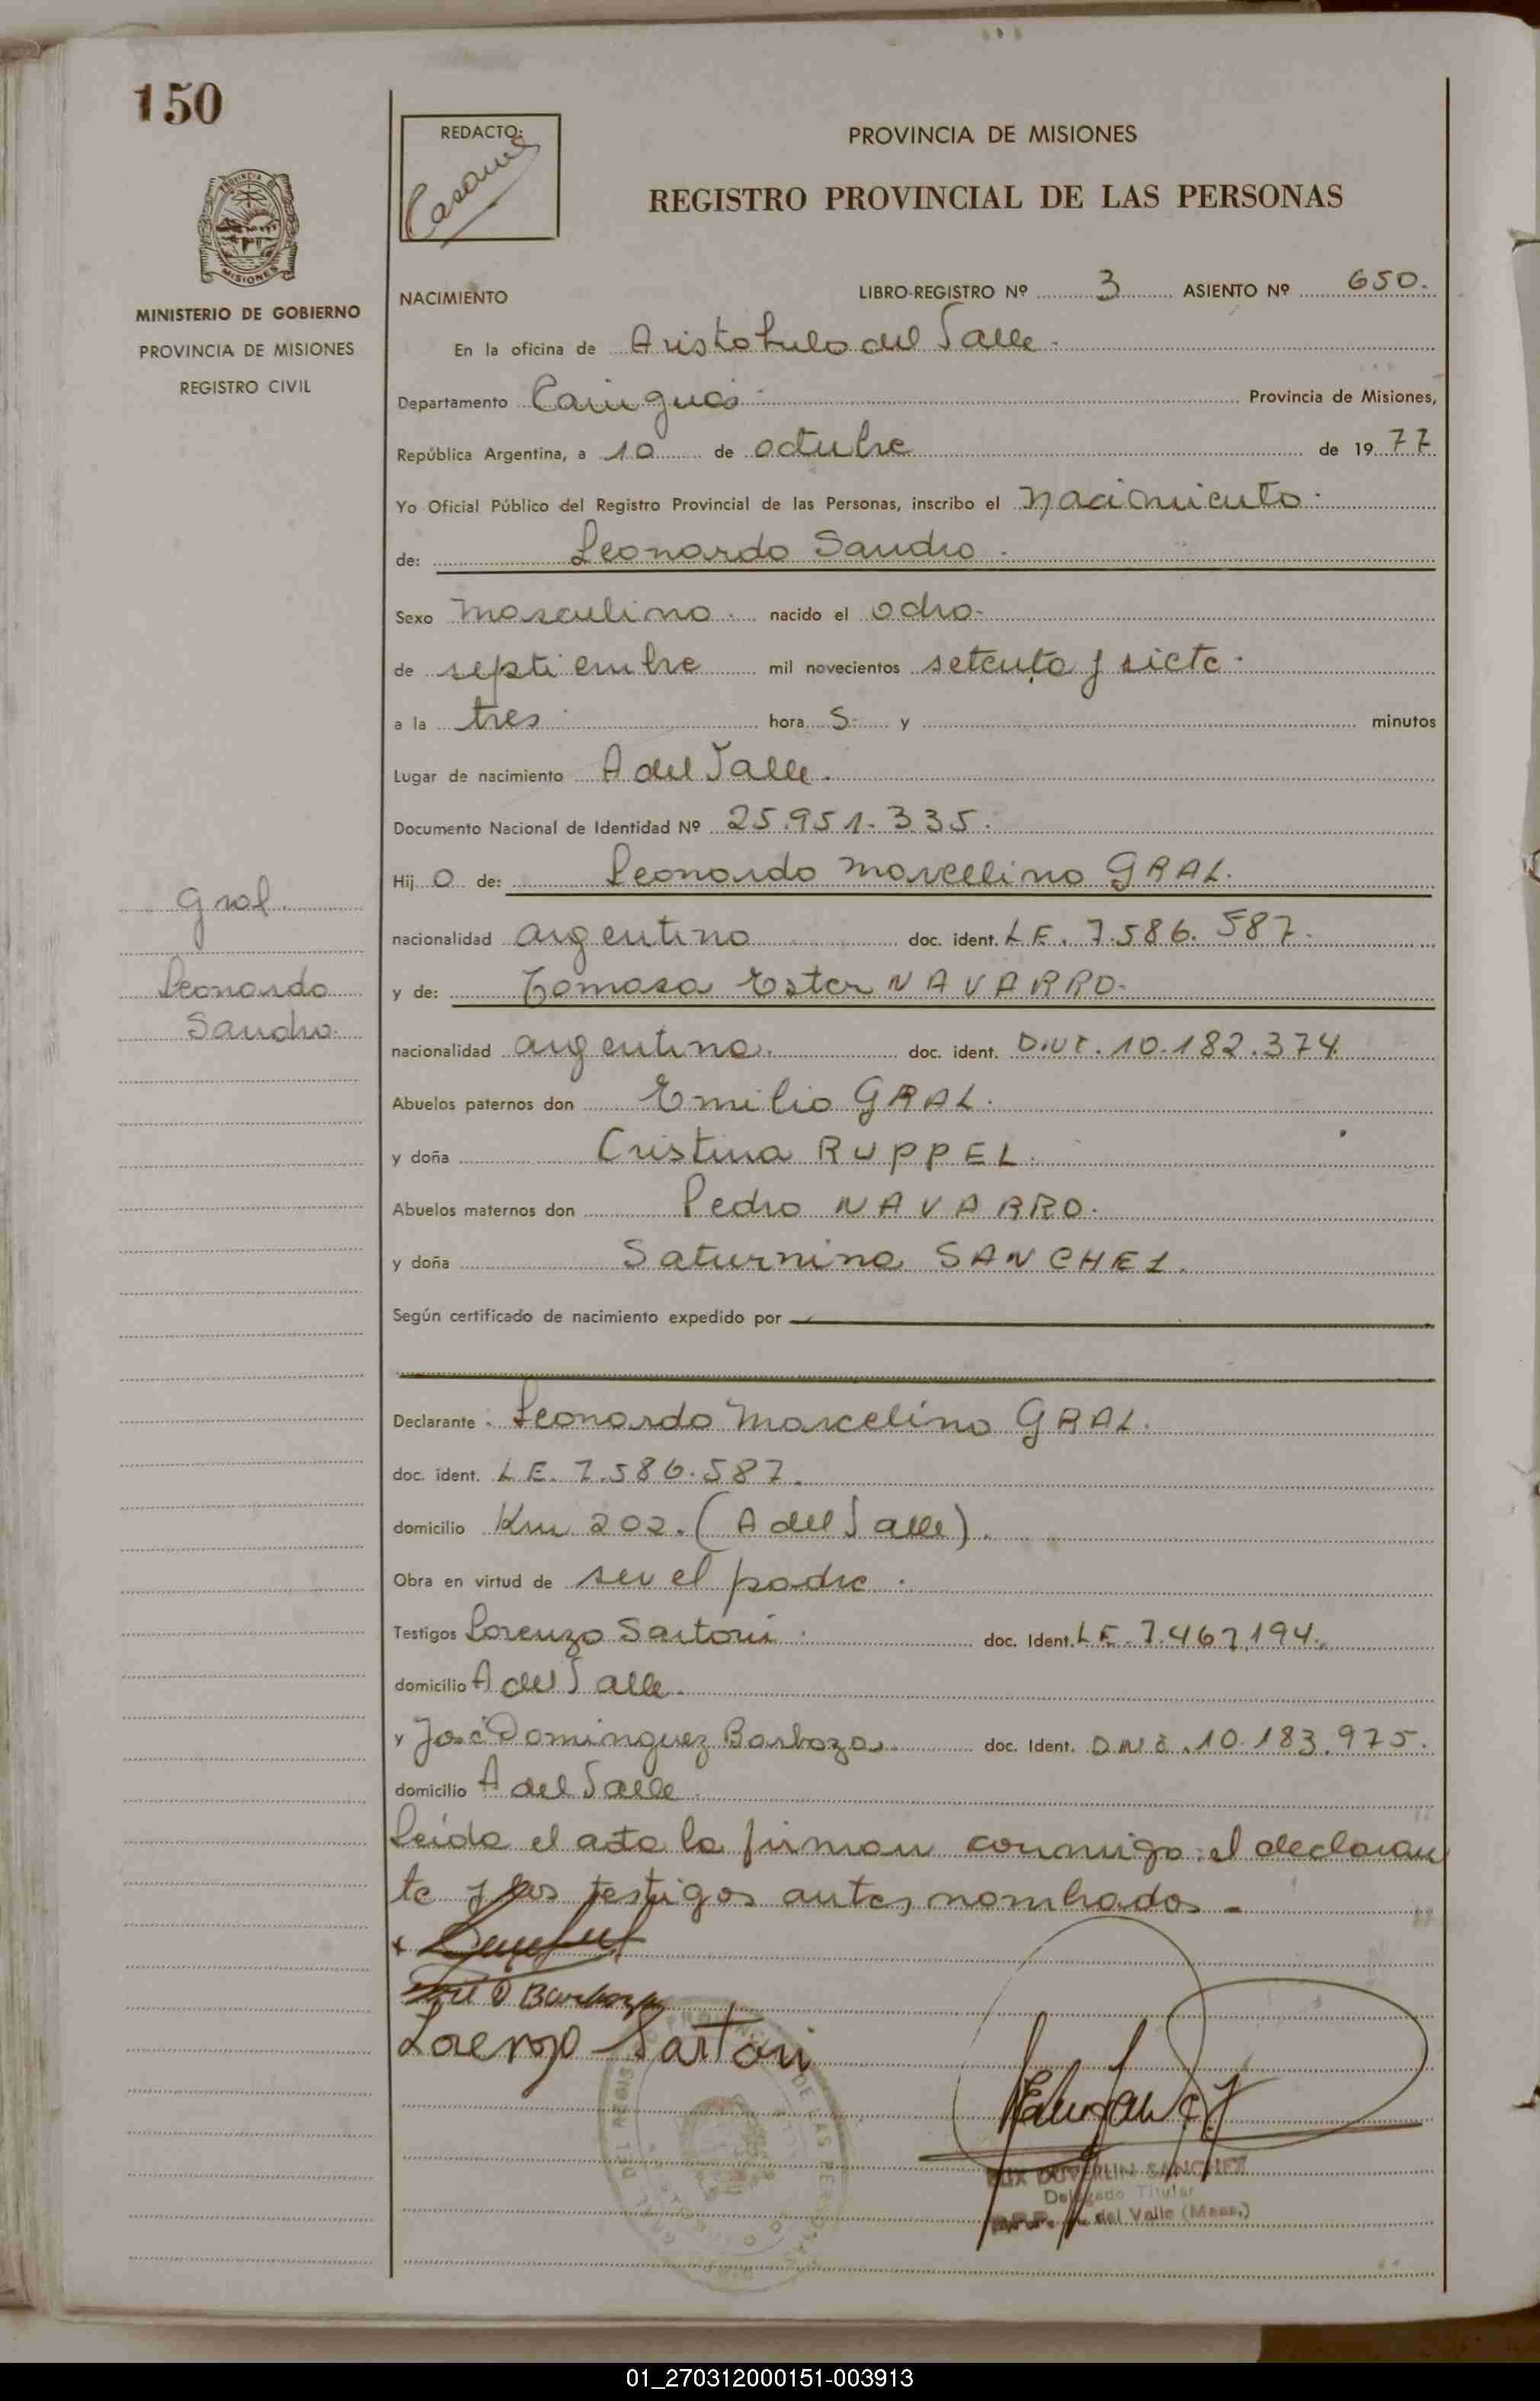 150
REDACTO:
PROVINCIA DE MISIONES
REGISTRO PROVINCIAL DE LAS PERSONAS
PROVINCIA
MISIONES
MINISTERIO DE GOBIERNO
PROVINCIA DE MISIONES
REGISTRO CIVIL
NACIMIENTO LIBRO-REGISTRO Nº 3 ASIENTO Nº 650.
En la oficina de Aristobulo del Valle.
Departamento Cainguás Provincia de Misiones,
República Argentina, a 10 de octubre de 1977
Yo Oficial Público del Registro Provincial de las Personas, inscribo el nacimiento.
de: Leonardo Sandro.
Sexo masculino. nacido el ocho.
de septiembre mil novecientos setenta y siete.
a la tres hora s. y minutos
Lugar de nacimiento A del Valle.
Documento Nacional de Identidad Nº 25.951.335.
Hij o de: Leonardo Marcelino GRAL.
nacionalidad argentino doc. ident. LE. 7.586.587.
y de: Tomasa Ester NAVARRO.
nacionalidad argentina. doc. ident. D.N.I. 10.182.374
Abuelos paternos don Emilio GRAL.
y doña Cristina RUPPEL.
Abuelos maternos don Pedro NAVARRO.
y doña Saturnina SANCHEZ.
Según certificado de nacimiento expedido por
Declarante Leonardo Marcelino GRAL.
doc. ident. LE. 7.586.587.
domicilio Km 202. (A del Valle).
Obra en virtud de ser el padre.
Testigos Lorenzo Sartori. doc. Ident. LE. 7.467.194.
domicilio A del Valle.
y José Dominguez Barboza. doc. Ident. D.N.I. 10.183.975.
domicilio A del Valle.
Leída el acta la firman conmigo el declaran
te y los testigos antes nombrados.
Gral.
Leonardo
Sandro.
Barboza
Lorenzo Sartori
DUVERLIN SANCHEZ
Delegado Titular
del Valle (Mnes.)
01_270312000151-003913